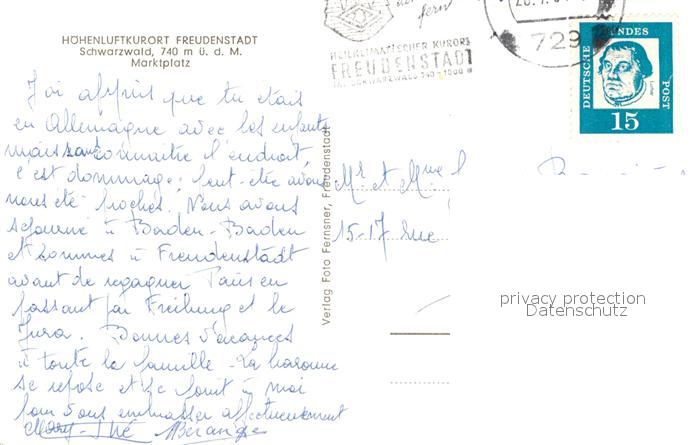 HÖHENLUFTKURORT FREUDENSTADT
Schwarzwald, 740 m ü. d. M.
Marktplatz
J'ai appris que tu étais
en Allemagne avec les enfants
mais sans connaître l'endroit,
c'est dommage, peut-être avons
nous été proches. Nous avons
séjourné à Baden-Baden
et sommes à Freudenstadt
avant de regagner Paris en
passant par Freiburg et le
Jura. Bonnes vacances
à toute la famille. La
se repose et se joint à moi
pour vous embrasser affectueusement
Verlag Foto Fernsner, Freudenstadt
fern
HEILKLIMATISCHER KURORT
FREUDENSTADT
IM SCHWARZWALD 740-1000 m
729
DEUTSCHE BUNDES POST
Luther
15
Mr et Mme
15-17 rue
privacy protection
Datenschutz